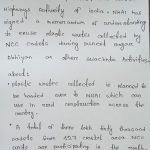 Highways Authority of India. NHAI has
signed a memorandum of understanding
to reuse plastic wastes collected by
NCC cadets during puneet sagar
Abhiyan or other swachhta activities
about:
• plastic wastes collected is planned to
be handed over to NHAI which can
use in road construction across the
country.
• A total of three lakh sixty thousand
cadets from NCC
units are participating in the month